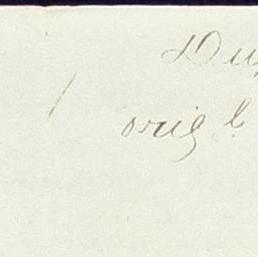 Du
orig l.